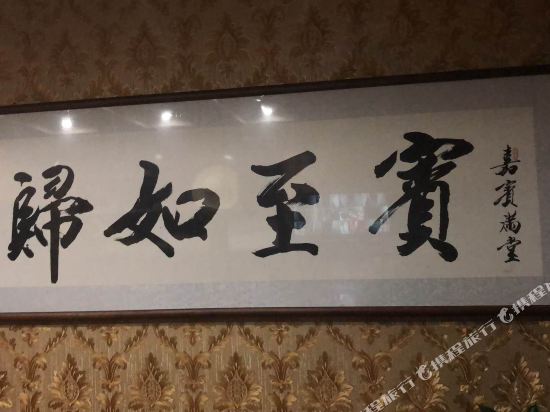 嘉賓滿堂
賓至如歸
携程旅行
携程旅行